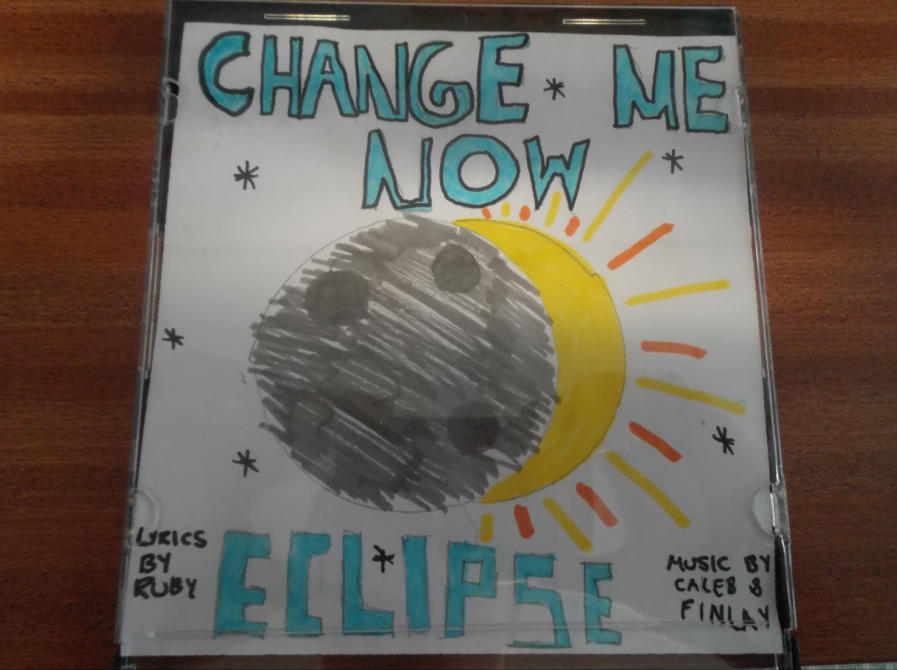 CHANGE ME
NOW
ECLIPSE
LYRICS
BY
RUBY
MUSIC BY
CALEB &
FINLAY